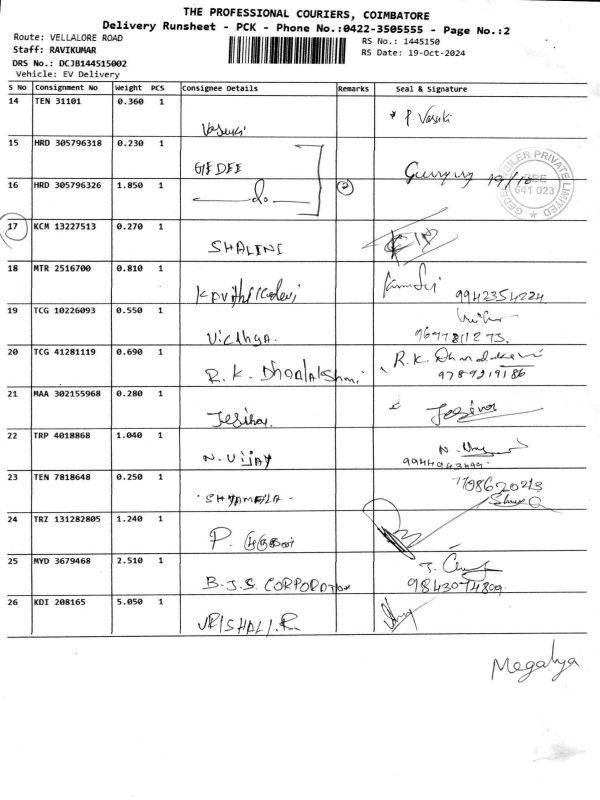 THE PROFESSIONAL COURIERS, COIMBATORE
Delivery Runsheet - PCK - Phone No.:0422-3505555 - Page No.:2
Route: VELLALORE ROAD
RS No.: 1445150
Staff: RAVIKUMAR
RS Date: 19-Oct-2024
DRS No.: DCJB144515002
Vehicle: EV Delivery
S No Consignment No Weight PCS Consignee Details Remarks Seal & Signature
14 TEN 31101 0.360 1 Vasuki * P. Vasuki
15 HRD 305796318 0.230 1 GEDEE
16 HRD 305796326 1.850 1 do 2 19/10
641 023
PRIVATE LIMITED
17 KCM 13227513 0.270 1 SHALINI
18 MTR 2516700 0.810 1 9942354224
19 TCG 10226093 0.550 1 Vidhya. 9697811273.
20 TCG 41281119 0.690 1 R. K. Dhanalakshmi R. K. 9789219186
21 MAA 302155968 0.280 1
22 TRP 4018868 1.040 1 N. Vijay N.
23 TEN 7818648 0.250 1 SHYAMALA
24 TRZ 131282805 1.240 1 P.
25 MYD 3679468 2.510 1 B.J.S. CORPORATION J. 9843074809
26 KDI 208165 5.050 1 VRISHALI.R
Megalya